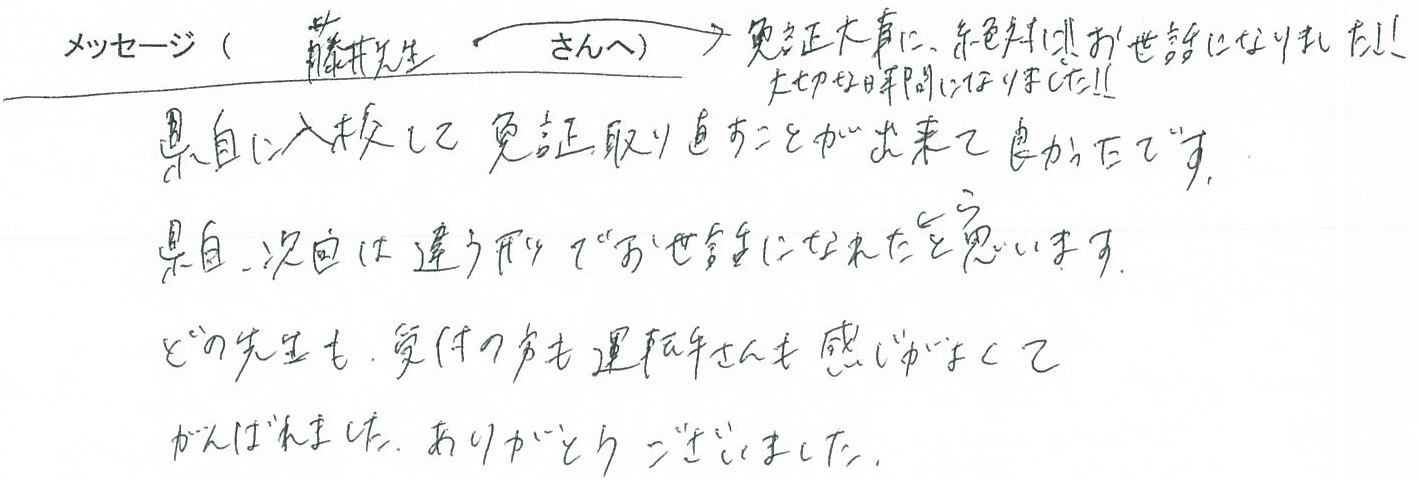 メッセージ( 藤井先生 さんへ) → 免許証大事に、絶対に!!お世話になりました!!
大切な時間になりました!!
県自に入校して 免許証取り直すことが出来て良かったです。
県自、次回は違う形でお世話になれたらと思います。
どの先生も、受付の方も運転手さんも感じがよくて
がんばれました。ありがとうございました。